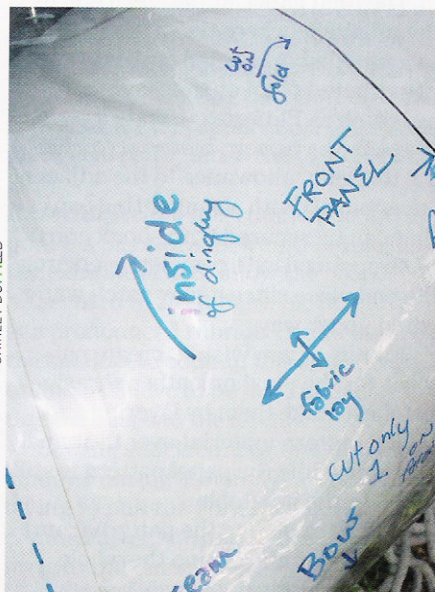 cut
on
fold
FRONT
PANEL
inside
of display
fabric
lay
cut only
1 on
Bow
seam